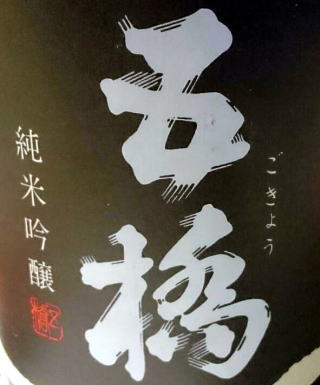 五橋
ごきょう
純米吟醸
五橋